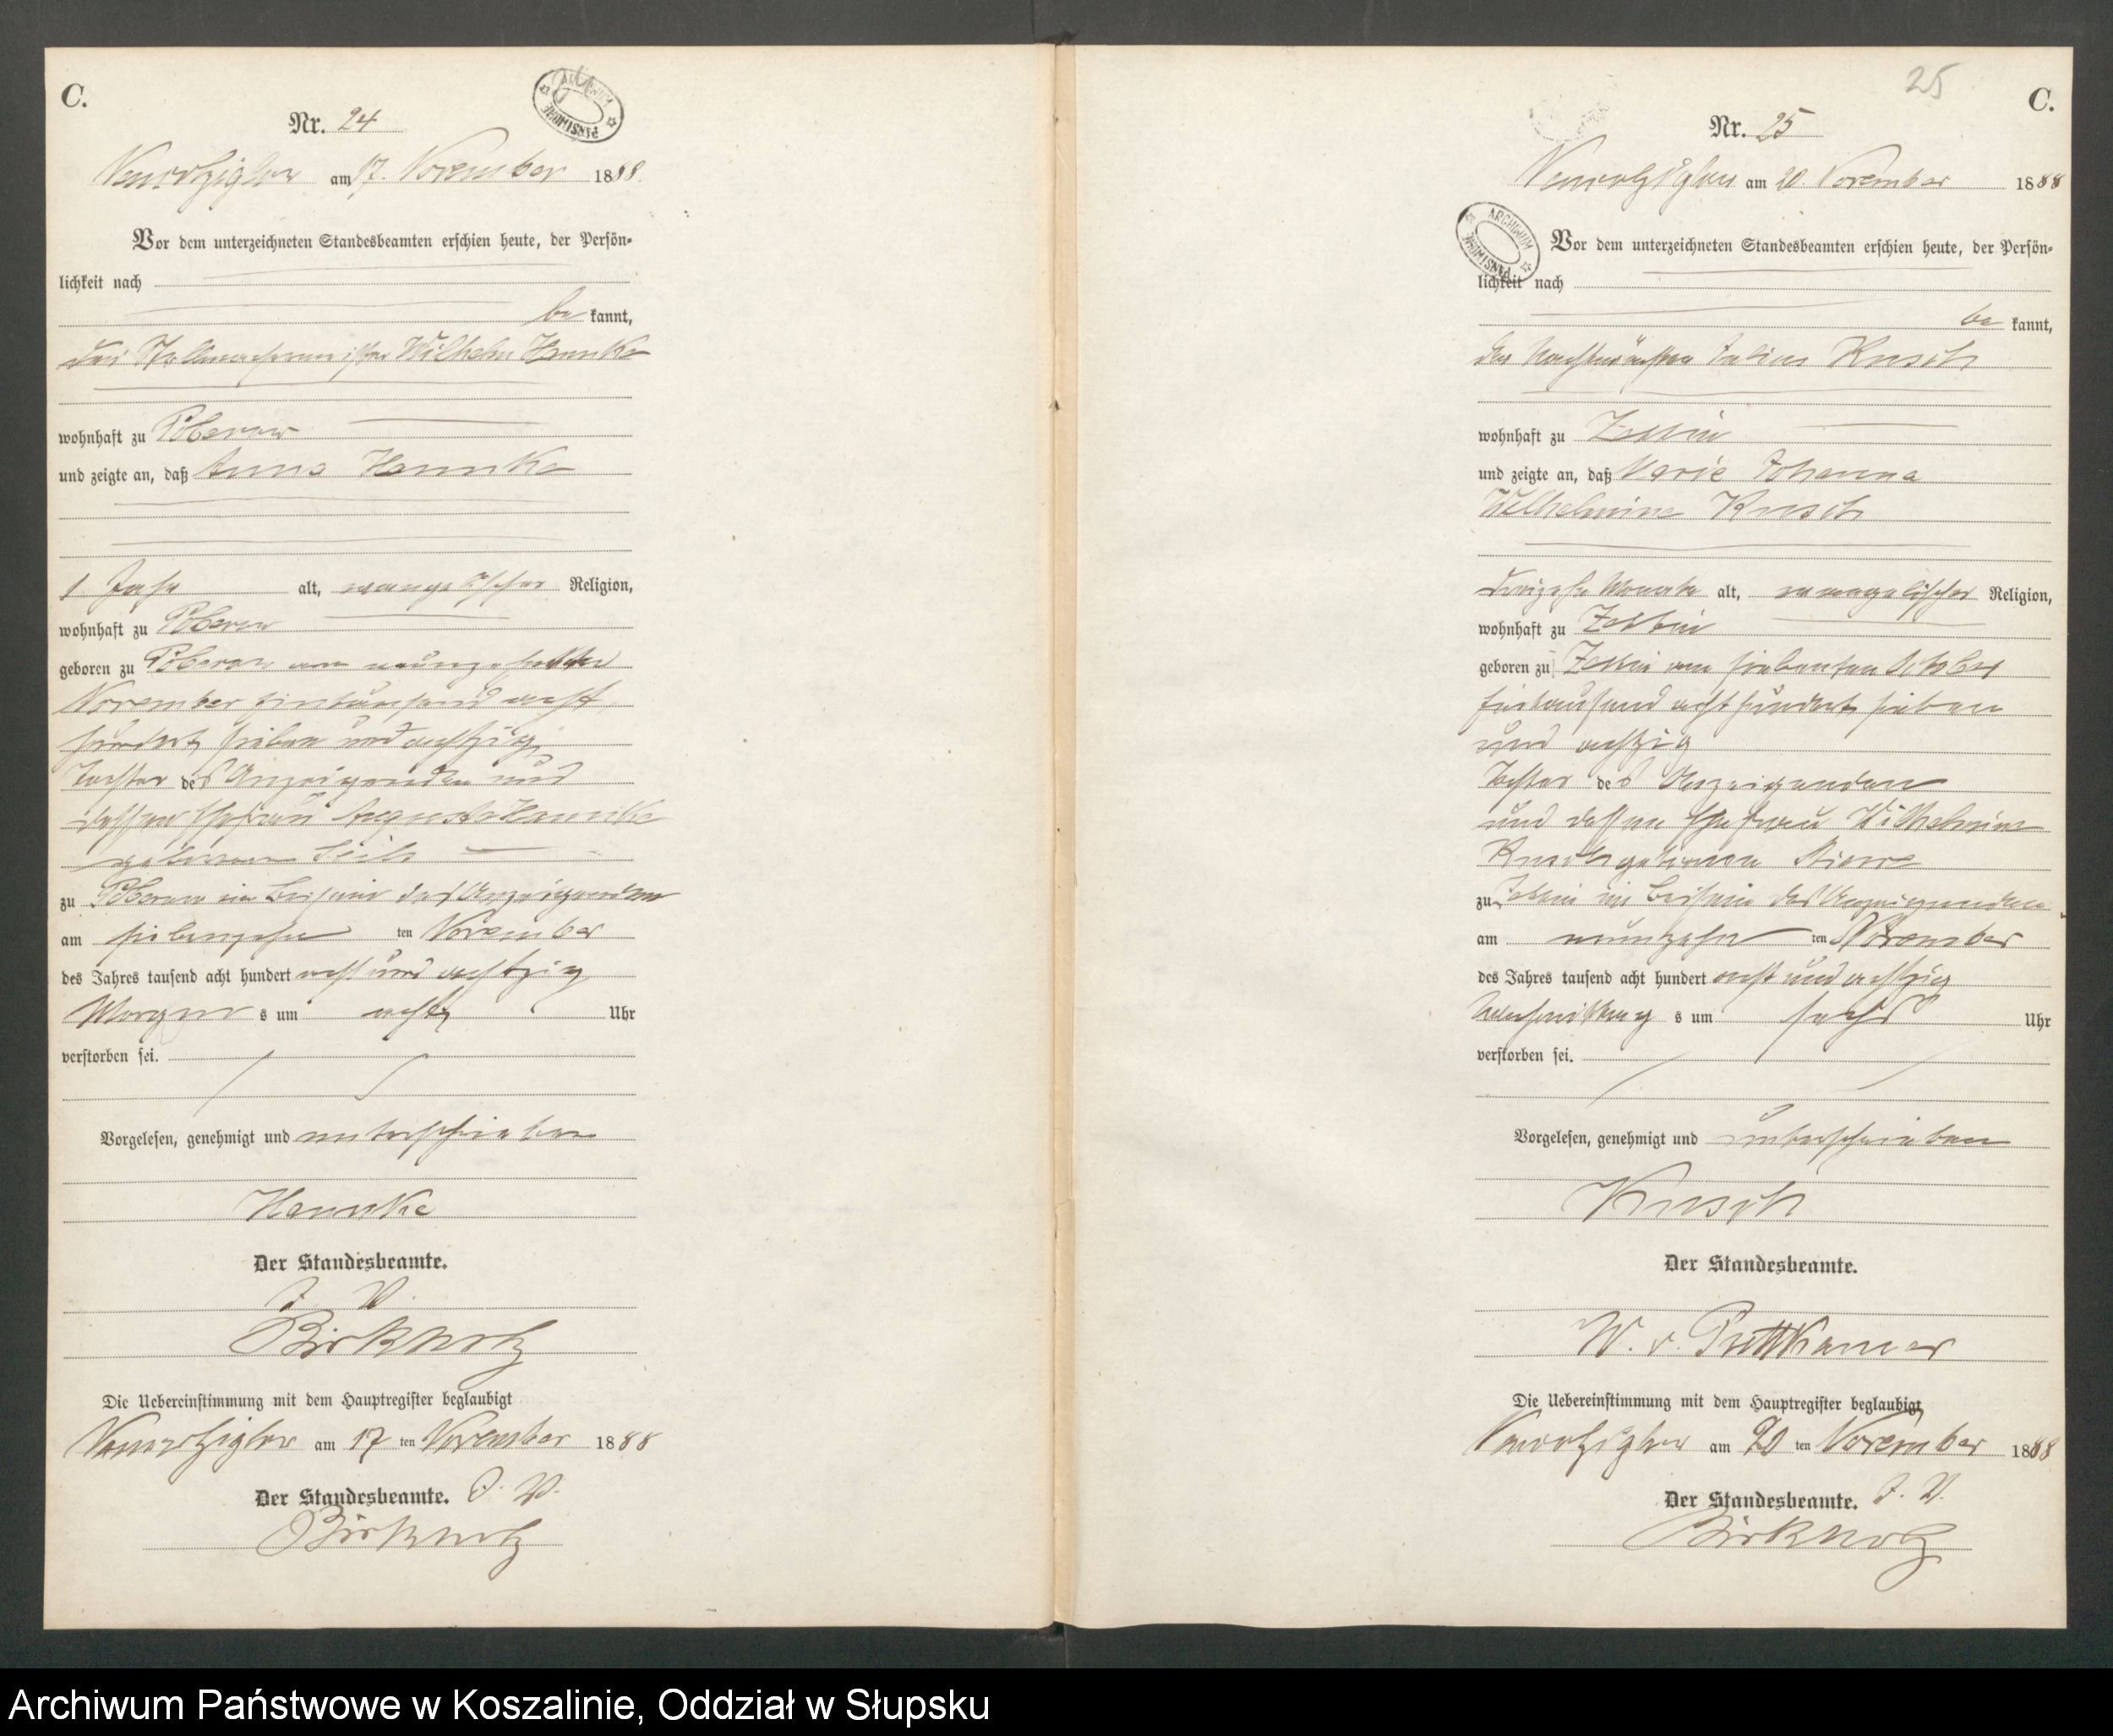 C.
Nr. 24
am 17. November 1888
Vor dem unterzeichneten Standesbeamten erschien heute, der Persön-
lichkeit nach
be kannt,
der Stellmachermeister Wilhelm Hannke
wohnhaft zu Poberow
und zeigte an, daß Anna Hannke
1 Jahr alt, evangelischer Religion,
wohnhaft zu Poberow
geboren zu Poberow am neunzehnten
November eintausend acht
hundert sieben und achtzig
Tochter des Anzeigenden und
dessen Ehefrau Auguste Hannke
geborenen
zu Poberow im Beisein des Anzeigenden
am siebenzehn ten November
des Jahres tausend acht hundert acht und achtzig
Morgen s um acht Uhr
verstorben sei.
Vorgelesen, genehmigt und unterschrieben
Hannke
Der Standesbeamte.
J. V.
Birkholz
Die Uebereinstimmung mit dem Hauptregister beglaubigt
am 17 ten November 1888
Der Standesbeamte. J. V.
Birkholz
25
C.
Nr. 25
am 20. November 1888
Vor dem unterzeichneten Standesbeamten erschien heute, der Persön-
lichkeit nach
be kannt,
der Nachtwächter Julius Kusch
wohnhaft zu Zettin
und zeigte an, daß Marie Johanna
Wilhelmine Kusch
dreizehn Monate alt, evangelischer Religion,
wohnhaft zu Zettin
geboren zu Zettin am siebenten October
eintausend acht hundert sieben
und achtzig
Tochter des Anzeigenden
und dessen Ehefrau Wilhelmine
Kusch geborenen
zu Zettin im Beisein des Anzeigenden
am neunzehn ten November
des Jahres tausend acht hundert acht und achtzig
Nachmittag s um sechs Uhr
verstorben sei.
Vorgelesen, genehmigt und unterschrieben
Kusch
Der Standesbeamte.
W. v. Puttkamer
Die Uebereinstimmung mit dem Hauptregister beglaubigt
am 20 ten November 1888
Der Standesbeamte. J. V.
Birkholz
Archiwum Państwowe w Koszalinie, Oddział w Słupsku